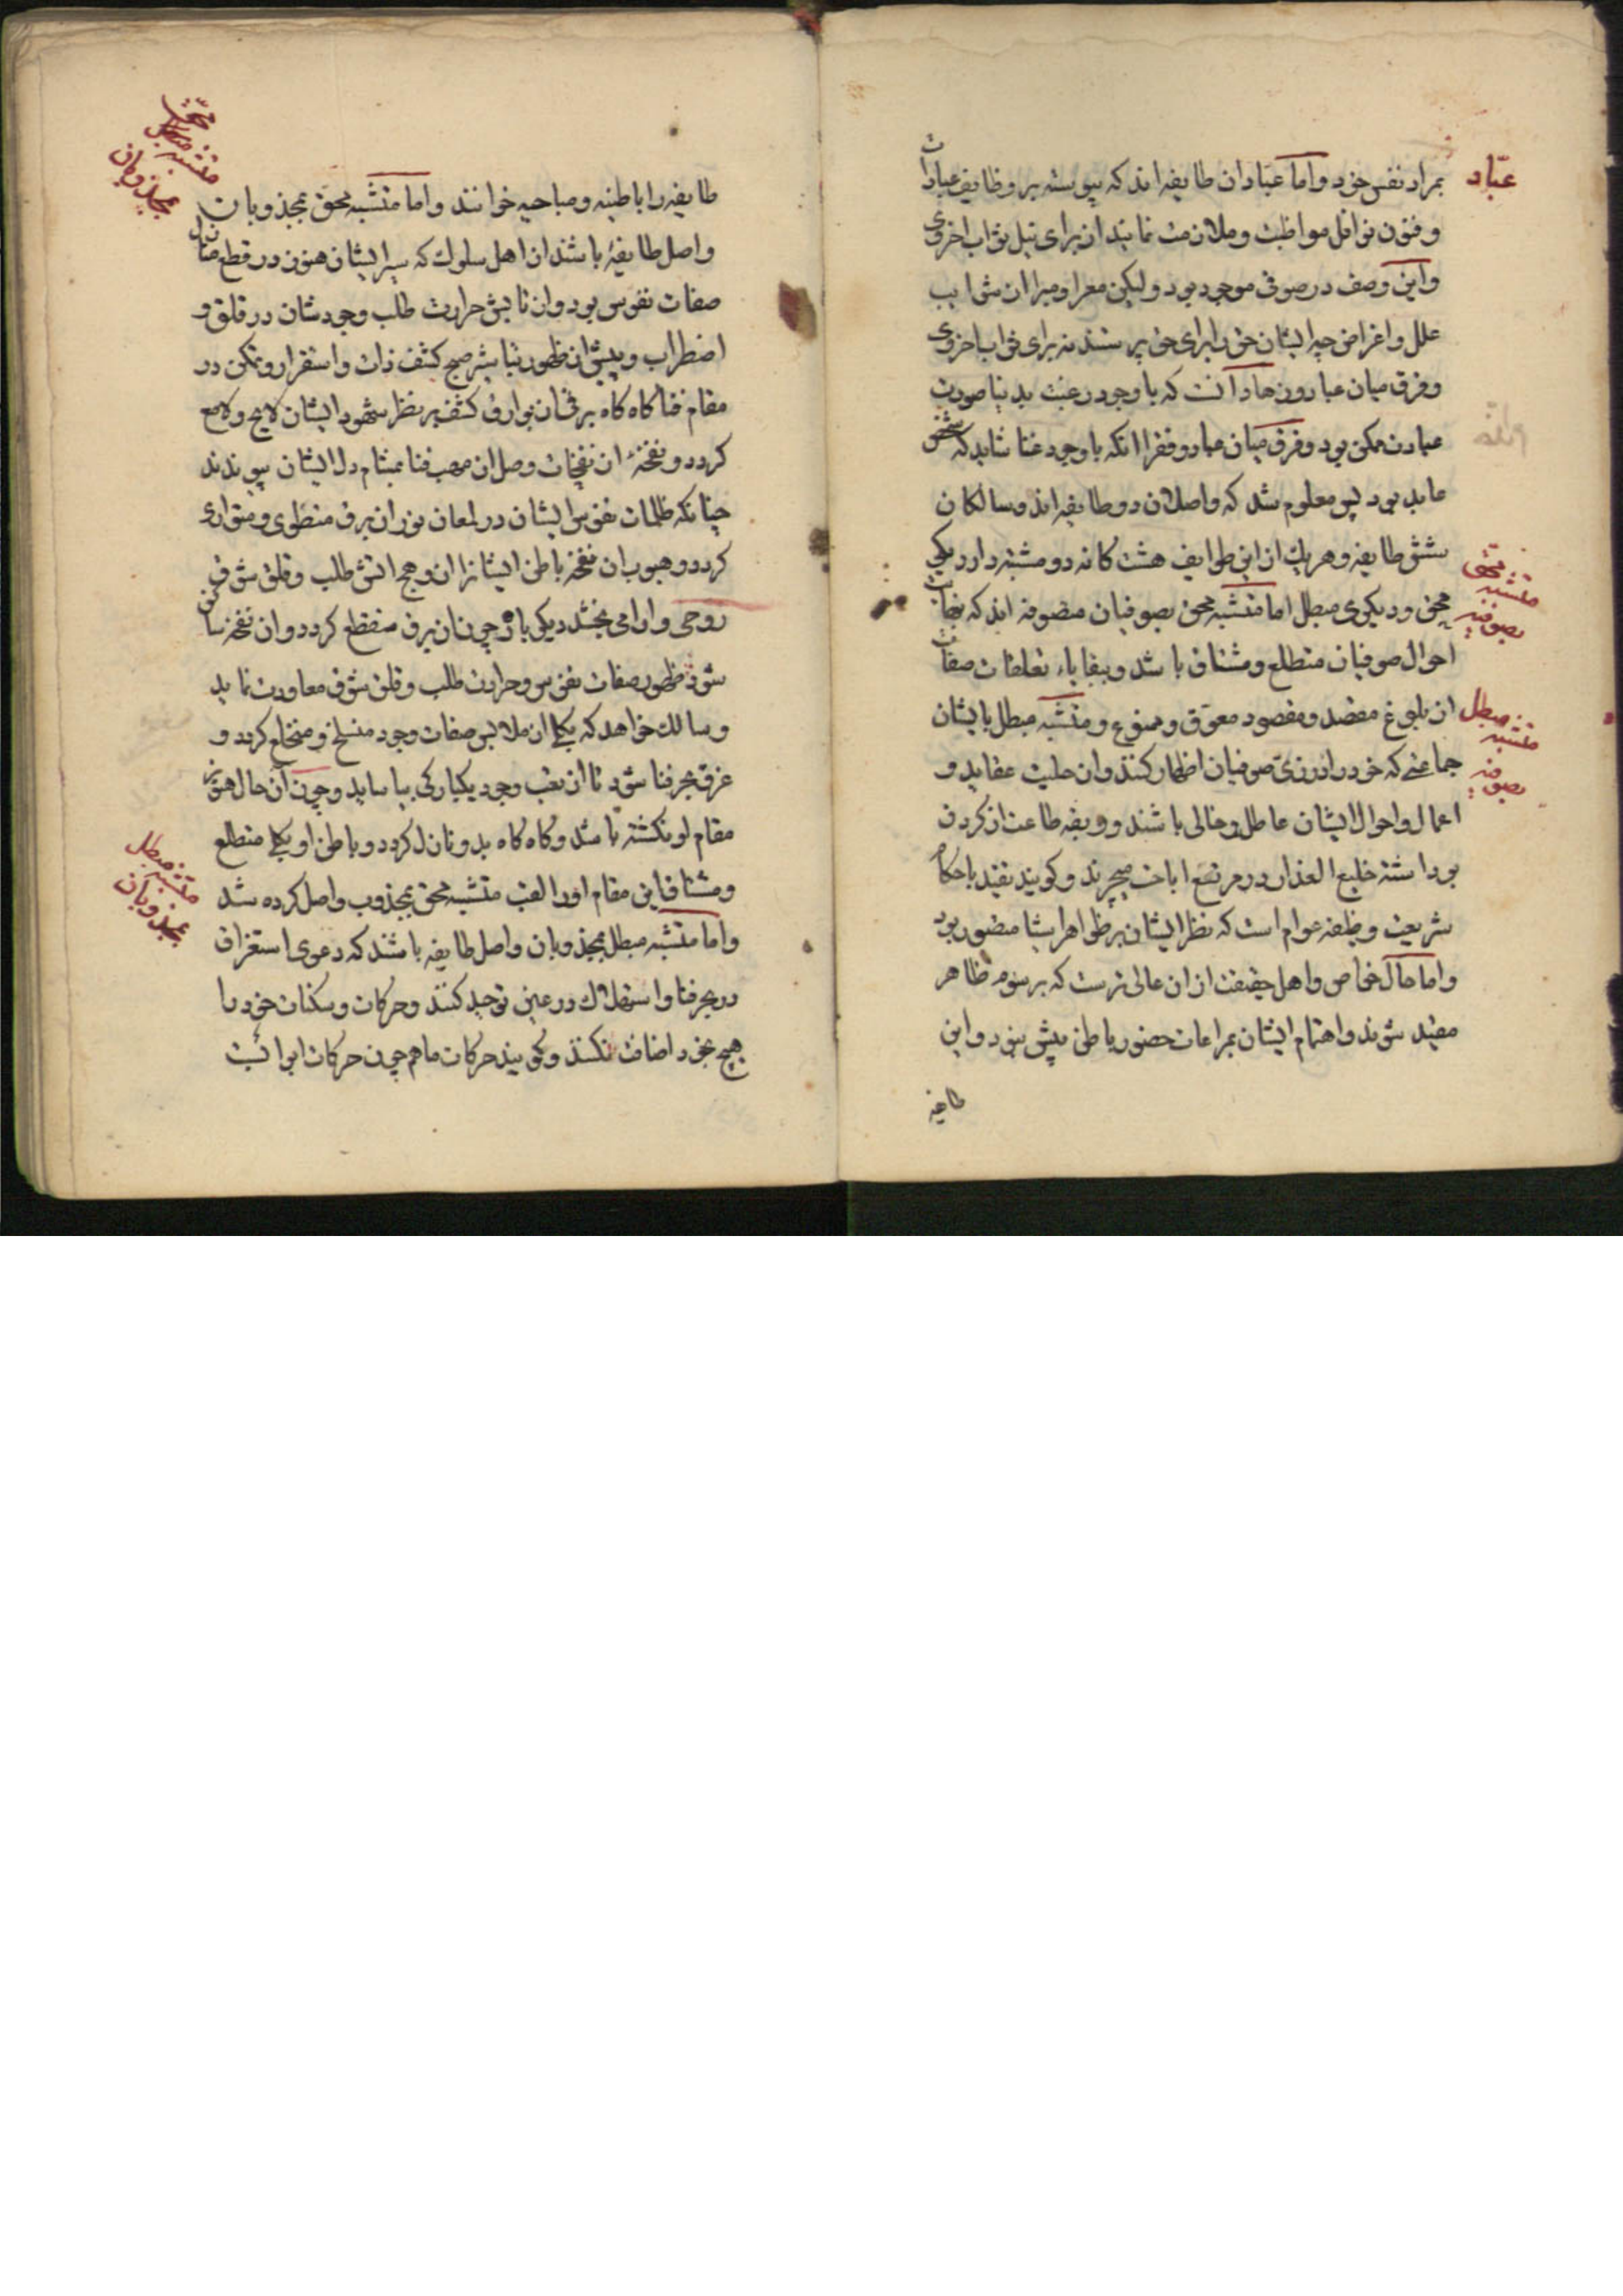 عبّاد
بمراد نفس خود و اما عبّادان طایفه اند که پیوسته بر وظایف عبادات
و فنون نوافل مواظبت و ملازمت نمایند از برای نیل ثواب اخروی
و این وصف در صوفی موجود بود ولیکن معرا و مبرا از شوایب
علل و اغراض چه ایشان حق را برای حق پرستند نه برای ثواب اخروی
و فرق میان عباد و زهاد آنست که با وجود رغبت بدنیا صورت
عبادت ممکن بود و فرق میان عباد و فقرا انکه با وجود غنا شاید که شخص
عابد بود پس معلوم شد که واصلان دو طایفه اند و سالکان
شش طایفه و هر یک از این طوایف هشت کانه دو متشبه دارد یکی
متشبه محق بصوفیه
محق و دیکری مبطل اما متشبه محق بصوفیان متصوفه اند که بنهایات
احوال صوفیان متطلع و مشتاق باشد و ببقایاء تعلقات صفات
متشبه مبطل بصوفیه
از بلوغ مقصد و مقصود معوّق و ممنوع و متشبه مبطل بایشان
جماعتی که خود را در زیّ صوفیان اظهار کنند و از حلیت عقاید و
اعمال و احوال ایشان عاطل و خالی باشند و ربقه طاعت از کردن
برداشته خلیع العذار در مرتع اباحت میچرند و کویند تقید باحکام
شریعت وظیفه عوام است که نظر ایشان بر ظواهر اشیا مقصور بود
و اما حال خواص و اهل حقیقت از ان عالی ترست که برسوم ظاهر
مقید شوند و اهتمام ایشان بمراعات حضور باطن بیش نبود و این
طایفه
طایفه را باطنیه و مباحیه خوانند و اما متشبه محق بمجذوبان
متشبه محق مجذوبان
واصل طایفهٔ باشند از اهل سلوک که سیر ایشان هنوز در قطع منازل
صفات نفوس بود و از تابش حرارت طلب وجودشان در قلق و
اضطراب و پیش از ظهور تباشیر صبح کشف ذات و استقرار و تمکن در
مقام فنا کاه کاه برقی از بوارق کشف بر نظر شهود ایشان لایح و لامع
کردد و نفحهٔ از نفحات وصل از مهب فنا بمشام دل ایشان پیوندد
چنانکه ظلمات نفوس ایشان در لمعان نور ان برق منطوی و متواری
کردد و هبوب ان نفحه باطن ایشانرا از وهج اتش طلب و قلق شوق
روحی و ارامی بخشد دیکر باز چون ان برق منقطع کردد و ان نفحه ساکن
شود ظهور صفات نفوس و حرارت طلب و قلق شوق معاودت نماید
و سالک خواهد که بکلی از ملابس صفات وجود منسلخ و منخلع کردد و
غرق بحر فنا شود تا از تعب وجود یکبارکی بیاساید و چون آن حال هنوز
مقام او نکشته باشد و کاه کاه بدو نازل کردد و باطن او بکلی متطلع
و مشتاق این مقام اورا لقب متشبه محق بمجذوب واصل کرده شد
متشبه مبطل مجذوبان
و اما متشبه مبطل بمجذوبان واصل طایفه باشند که دعوی استغراق
در بحر فنا و استهلاک در عین توحید کنند و حرکات و سکنات خود را
هیچ بخود اضافت نکنند و کویند حرکات ما همچون حرکات ابوابست